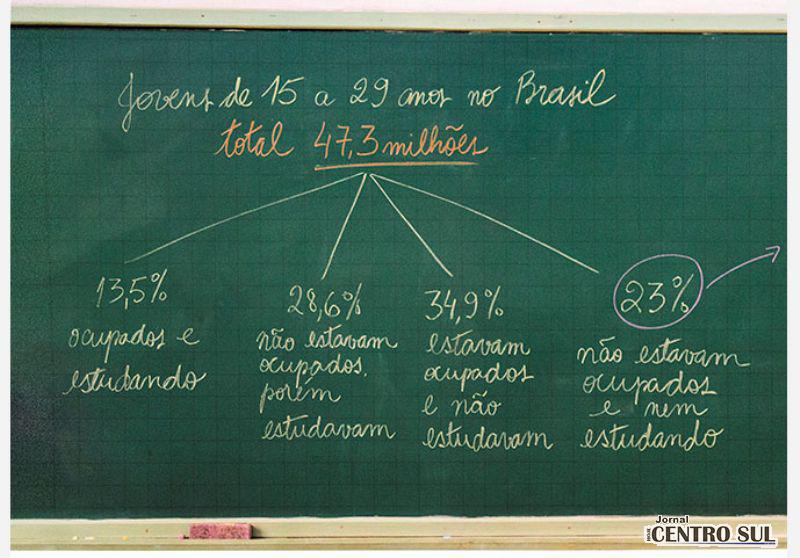 Jovens de 15 a 29 anos no Brasil
total 47,3 milhões
13,5%
ocupados e
estudando
28,6%
não estavam
ocupados,
porém
estudavam
34,9%
estavam
ocupados
e não
estudavam
23%
não estavam
ocupados
e nem
estudando
Jornal
CENTRO SUL